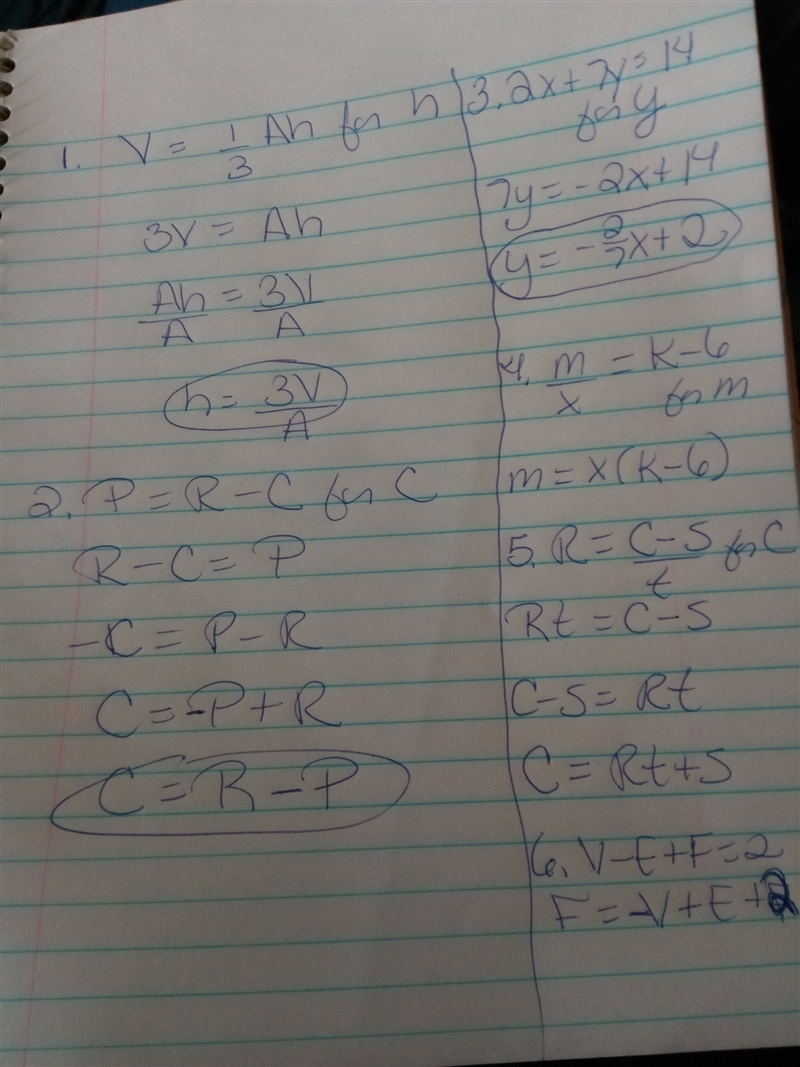 1. V = 1/3 Ah for h
3V = Ah
Ah/A = 3V/A
h = 3V/A
2. P = R - C for C
R - C = P
-C = P - R
C = -P + R
C = R - P
3. 2x + 7y = 14
for y
7y = -2x + 14
y = -2/7x + 2
4. m/x = K - 6
for m
m = x(K - 6)
5. R = C - S/t for C
Rt = C - S
C - S = Rt
C = Rt + S
6. V - E + F = 2
F = -V + E + 2